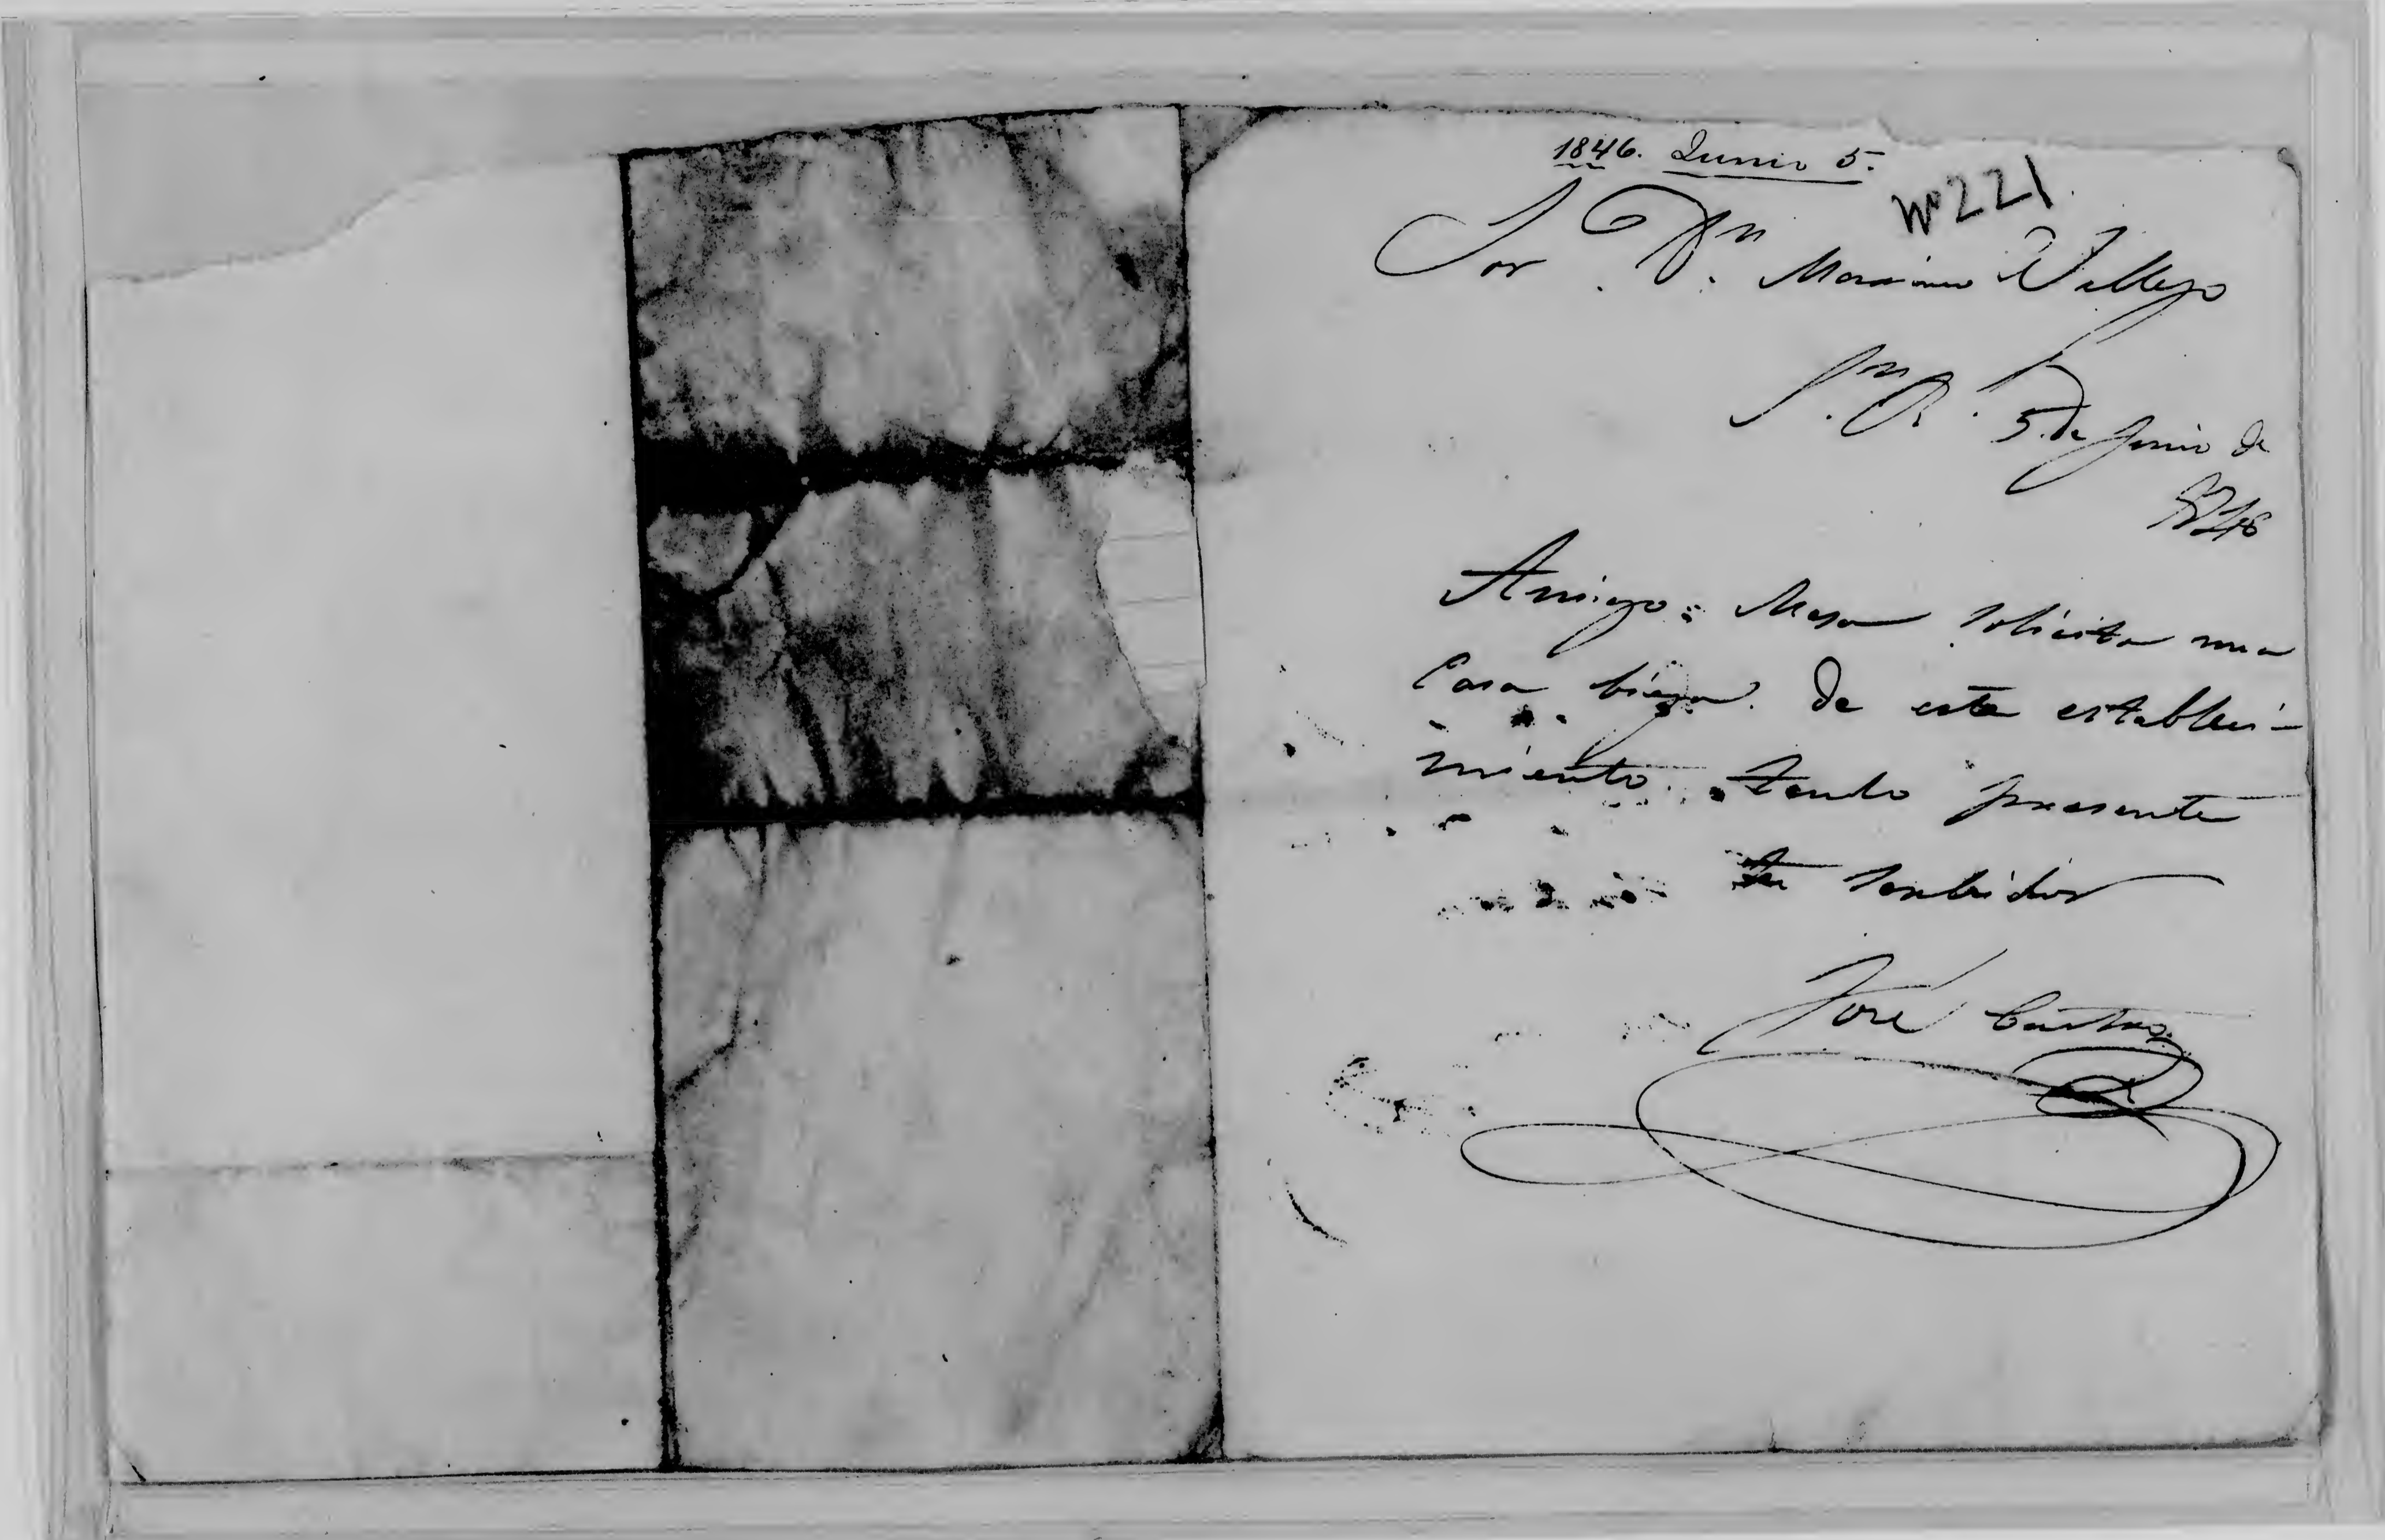 1846. Junio 5.
Nº 221
Sor. Dn. Mariano Vallejo
Sn. R. 5 de Junio de
846
Amigo: Mesa solicita una
Casa bieja de este estableci-
miento. tenlo presente
tu serbidor
José Castro